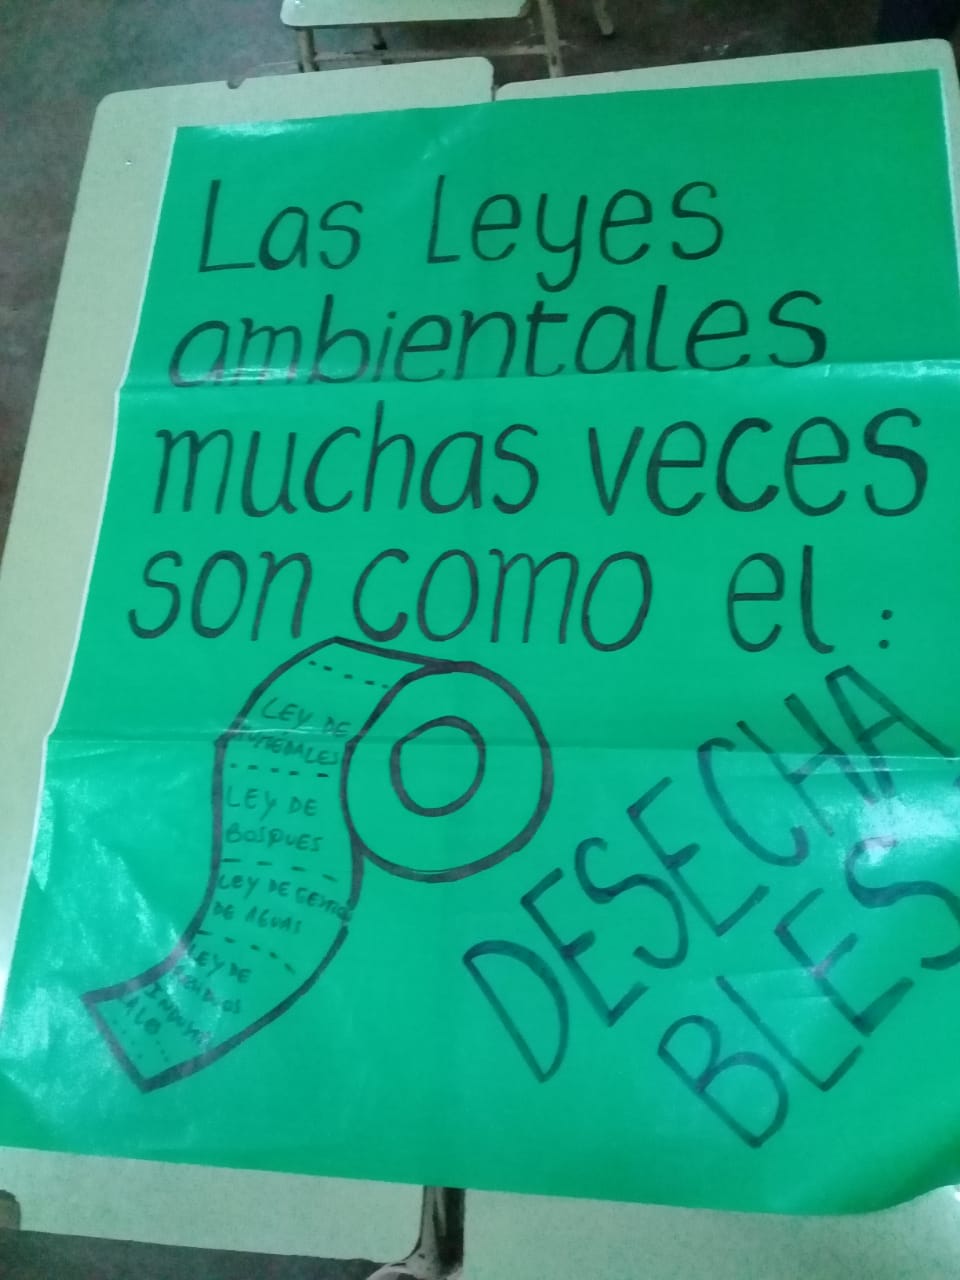 Las Leyes
ambientales
muchas veces
son como el :
LEY DE
HUMEDALES
LEY DE
BOSQUES
LEY DE GESTION
DE AGUAS
LEY DE
RESIDUOS
INDUSTRI
ALES
DESECHA
BLES